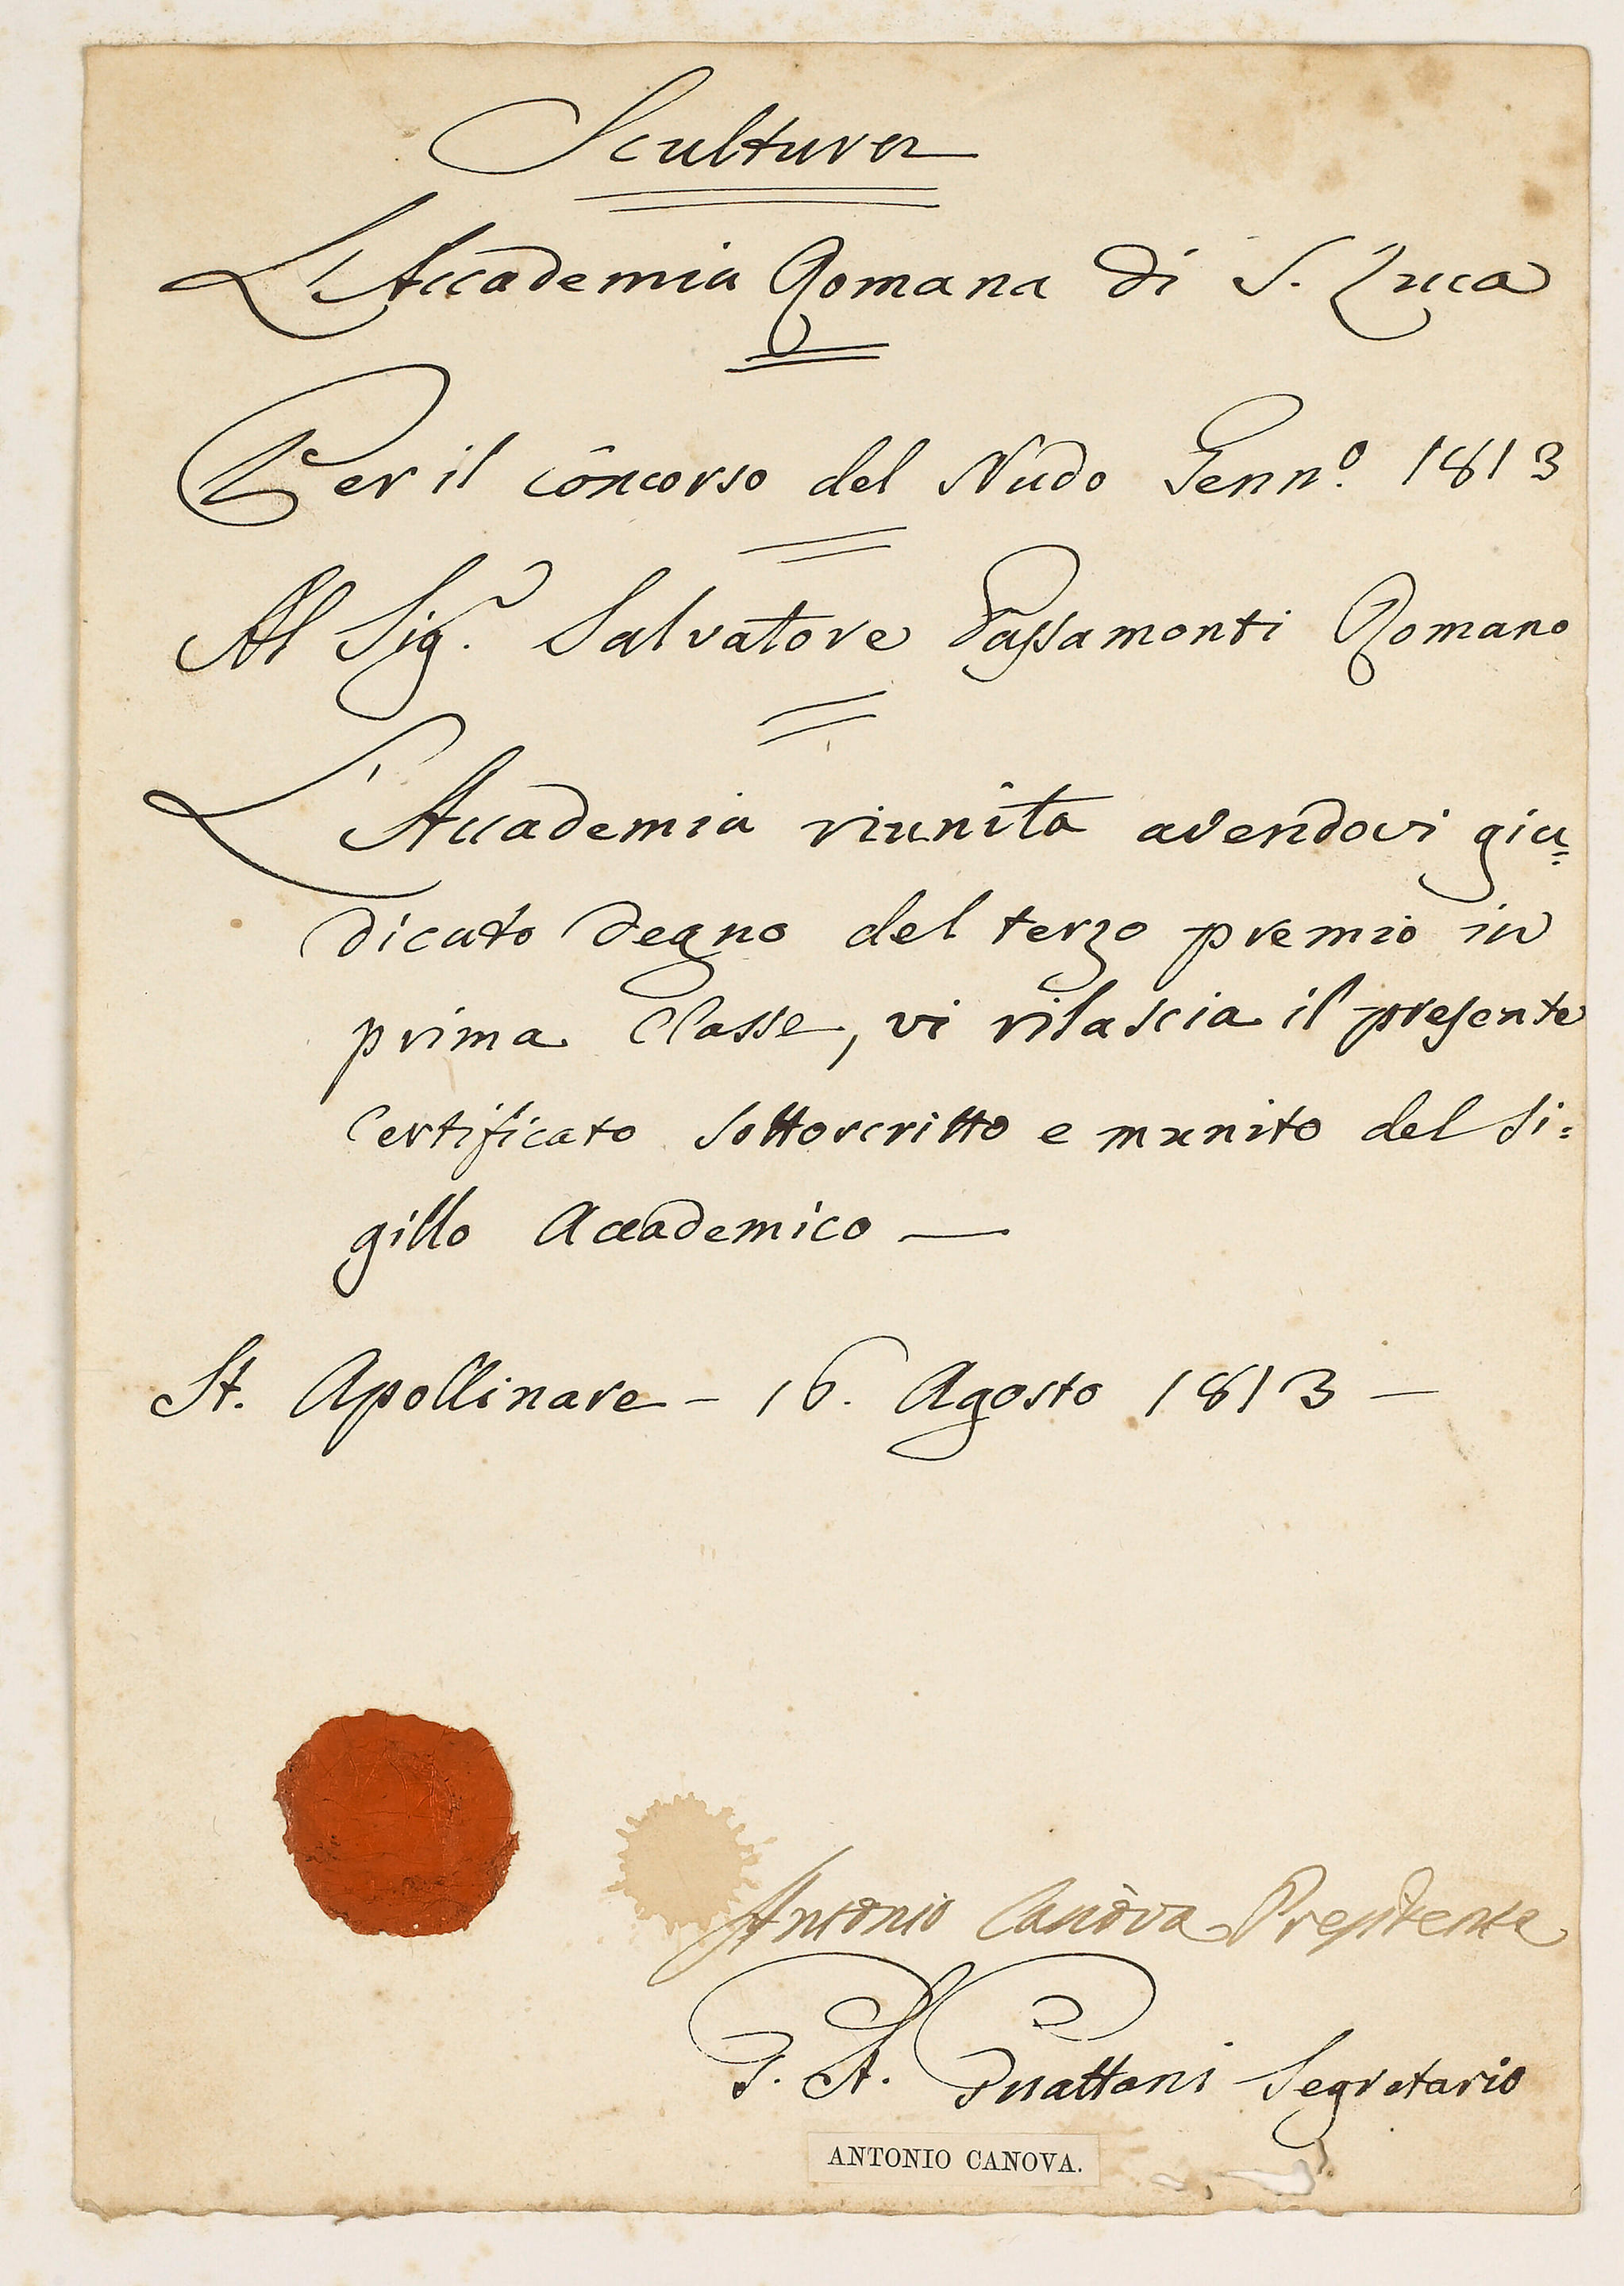 Scultura
L'Accademia Romana di S. Luca
Per il concorso del Nudo Genn.º 1813
Al Sig.r Salvatore Passamonti Romano
L'Accademia riunita avendovi giu=
dicato degno del terzo premio in
prima Classe, vi rilascia il presente
Certificato sottoscritto e munito del si=
gillo Accademico —
St. Apollinare – 16. Agosto 1813 —
Antonio Canova Presidente
G. A. Guattani Segretario
ANTONIO CANOVA.